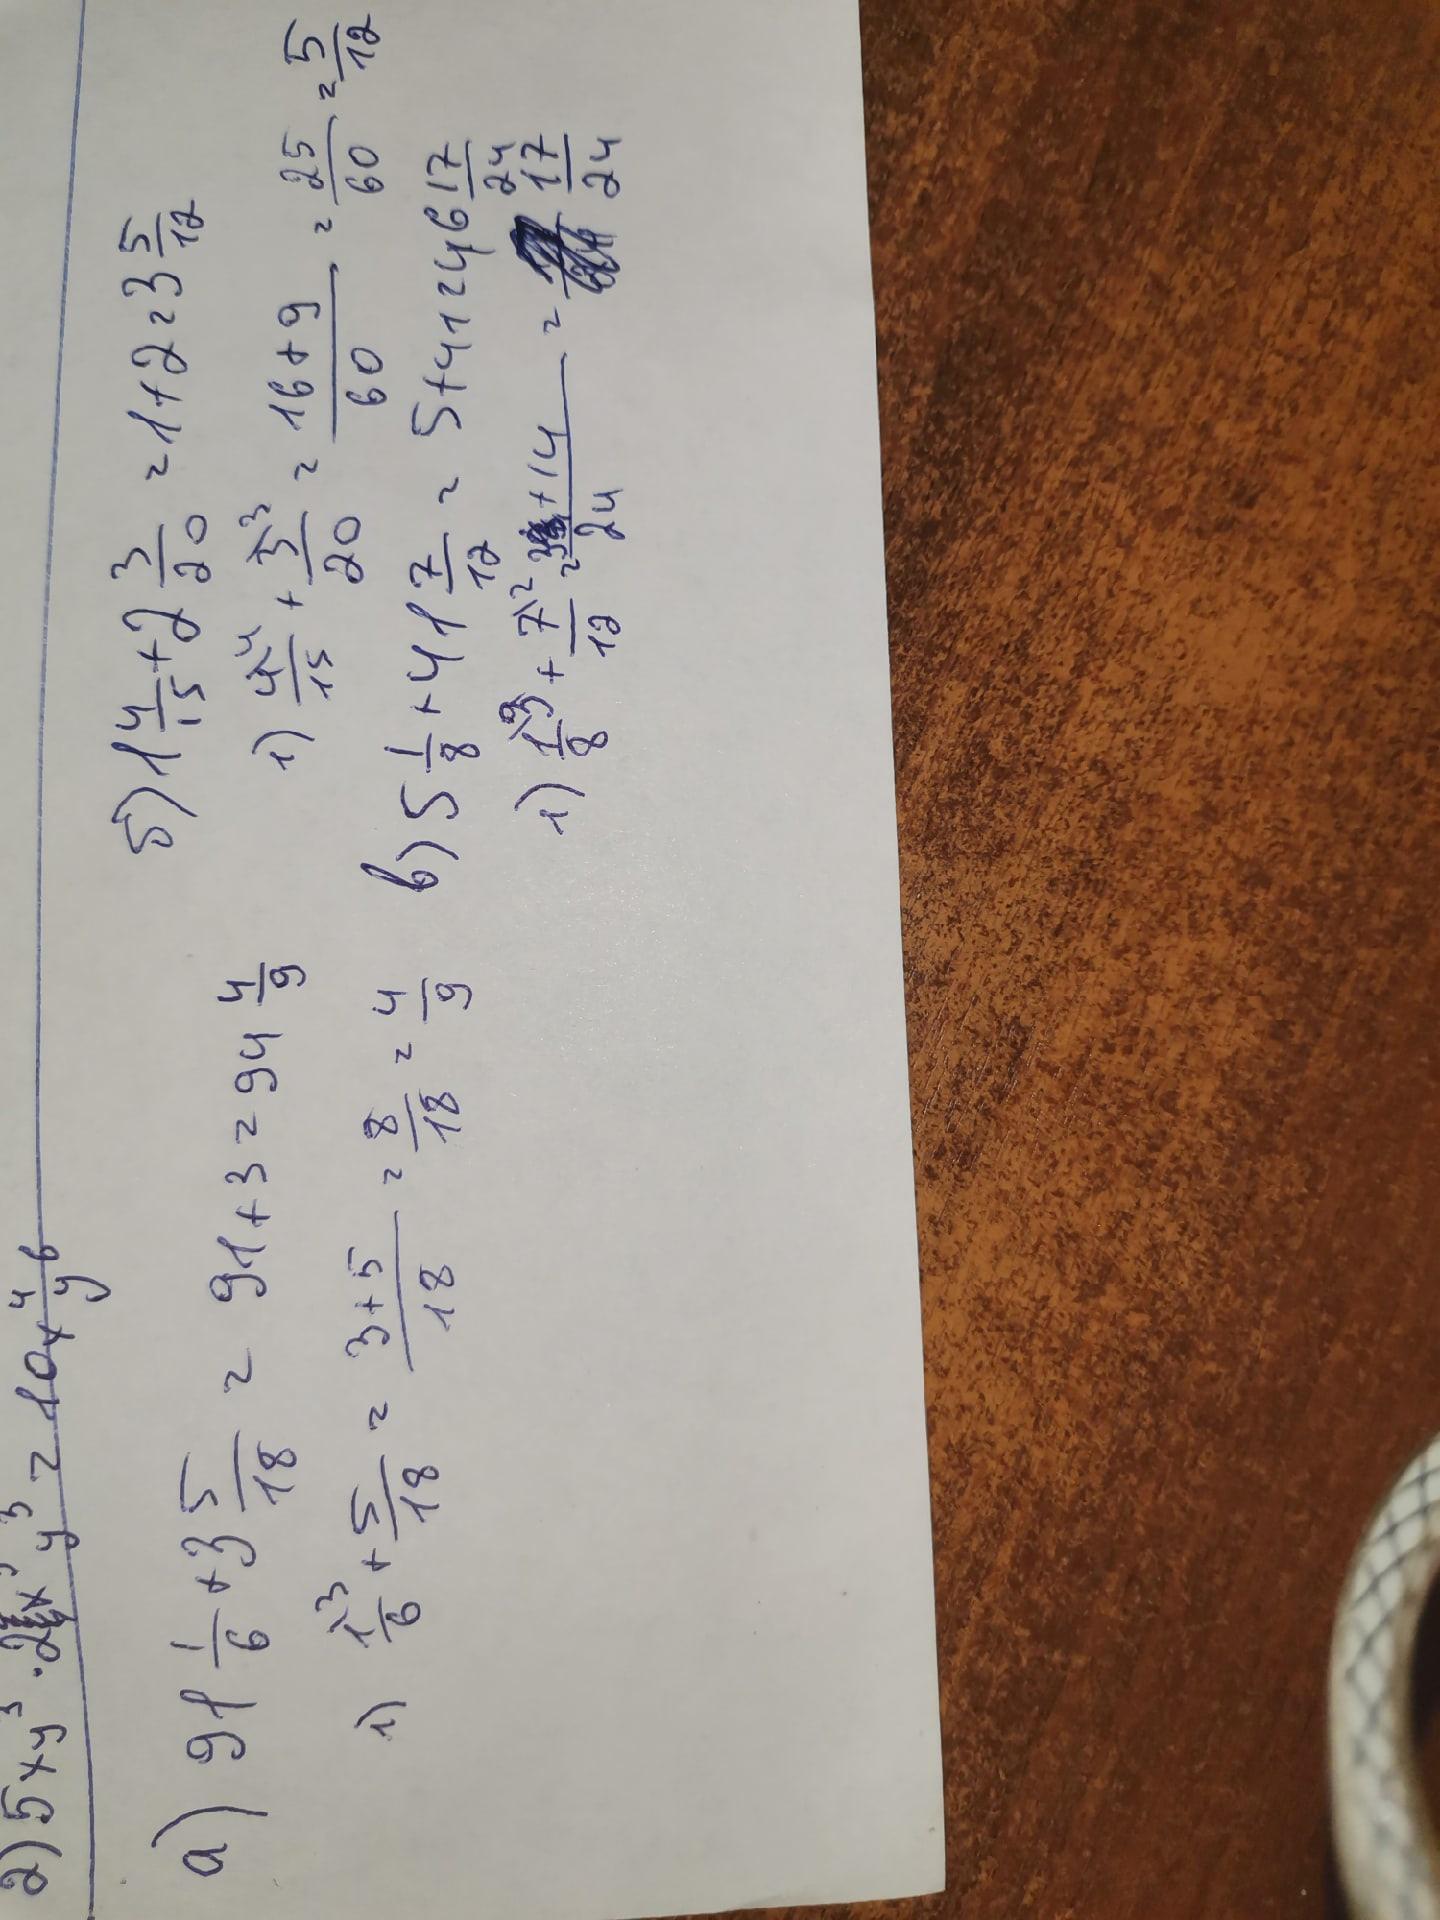 2) 5xy³ · 2x³y³ = 10x⁴y⁶
а) 91 1/6 + 3 5/18 = 91+3=94 4/9
1) 1\³/6 + 5/18 = 3+5/18 = 8/18 = 4/9
б) 1 4/15 + 2 3/20 = 1+2=3 5/12
1) 4\⁴/15 + 3\³/20 = 16+9/60 = 25/60 = 5/12
в) 5 1/8 + 41 7/12 = 5+41=46 17/24
1) 1\³/8 + 7\²/12 = 3+14/24 = 17/24